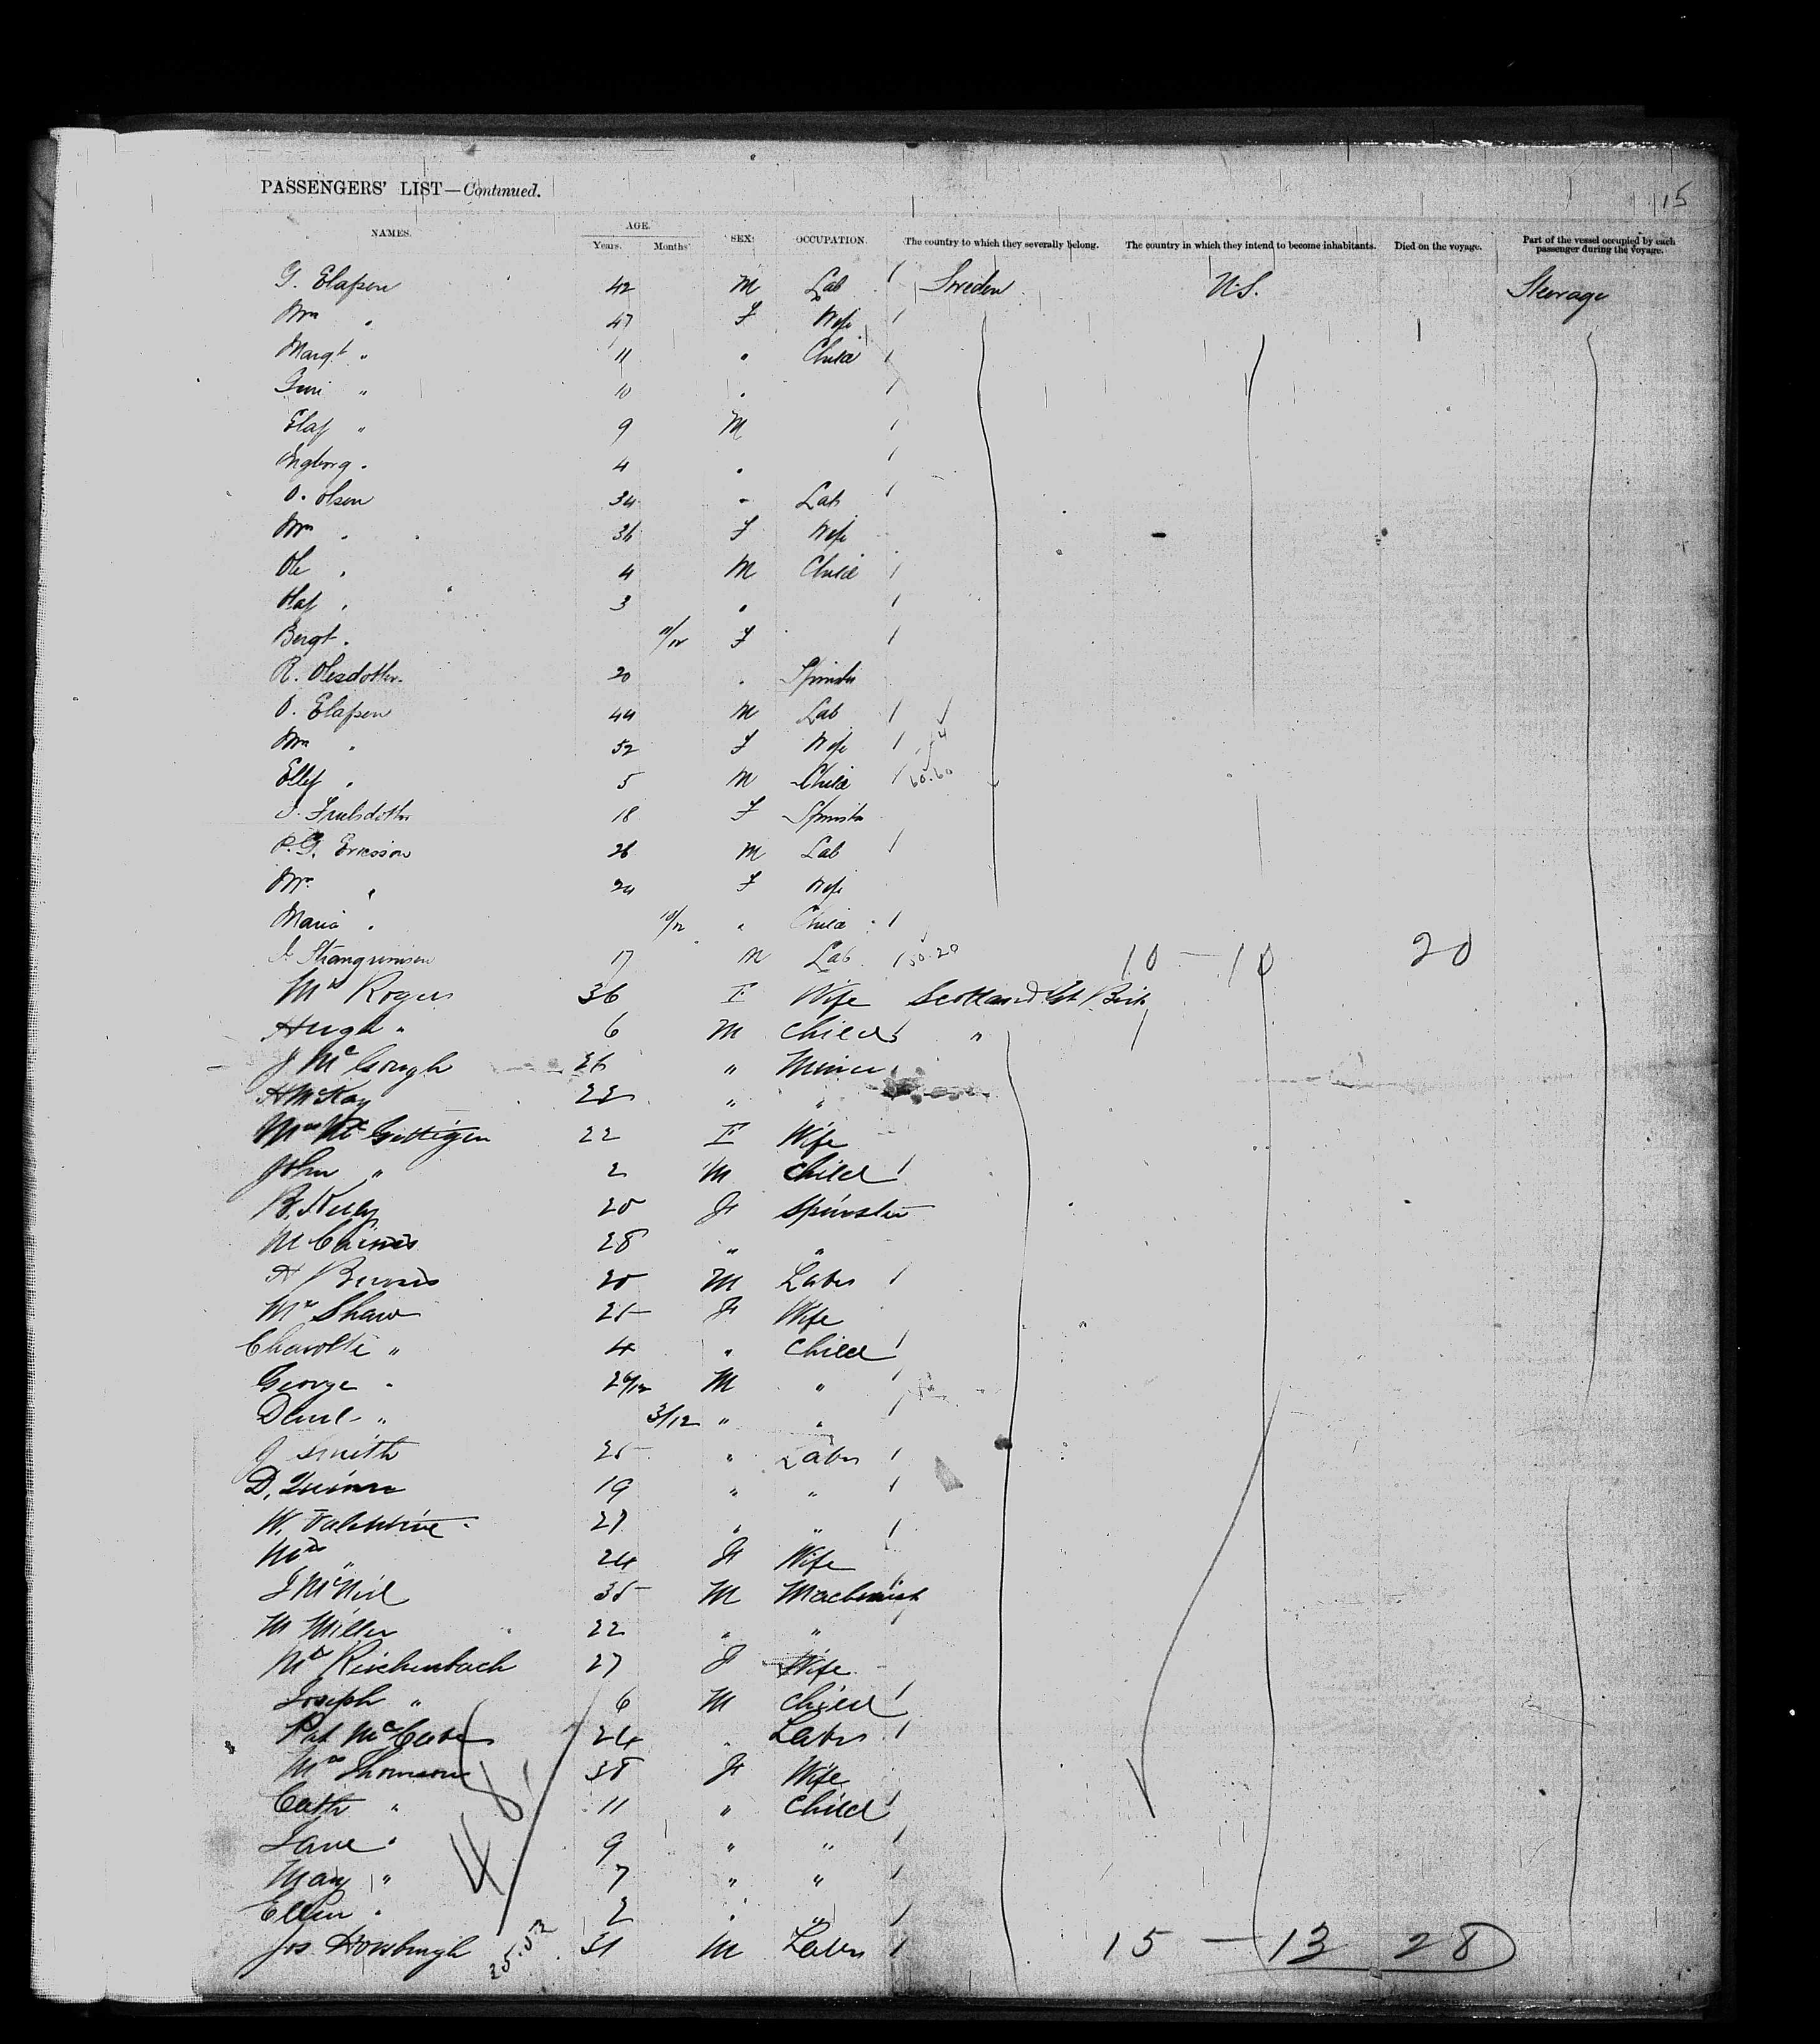 15
PASSENGERS' LIST—Continued.
NAMES. AGE. Years. Months. SEX. OCCUPATION. The country to which they severally belong. The country in which they intend to become inhabitants. Died on the voyage. Part of the vessel occupied by each passenger during the voyage.
G. Elafsen 42 M Lab Sweden U.S. Steerage
Mrs " 47 F Wife
Margt " 11 " Child
" 10 "
Elaf " 9 M
Ingborg " 4 "
O. Olsen 34 " Lab
Mrs " 36 F Wife
Ole " 4 M Child
Olaf " 3 "
Bergt " 11/12 F
R. Olesdotter 20 " Spinster
O. Elafsen 44 M Lab
Mrs " 52 F Wife
Ellef " 5 M Child 60.60
18 F Spinster
P. G. Ericsson 26 M Lab
Mrs " 24 F Wife
Maria " 10/12 " Child
17 M Lab 10 — 10 20
Mrs Rogers 36 F Wife Scotland Gt Brit
Hugh " 6 M Child "
J McGough 26 " Miner
H McKay 22 " "
Mrs McGettigen 22 F Wife
John " 2 M Child
B. Kelly 20 F Spinster
M Cairns 28 " "
A Burns 20 M Labr
Mrs Shaw 25 F Wife
Charolte " 4 " Child
George " 2 6/12 M "
David " 3/12 " "
J Smith 25 " Labr
D. Quinn 19 " "
W. Valentine 27 " "
Mrs " 24 F Wife
J McNeil 35 M Machinist
M Miller 22 " "
Mrs Rischenbach 27 F Wife
Joseph " 6 M Child
Pat McCabe 24 " Labr
Mrs Thomson 38 F Wife
Cath " 11 " Child
Jane " 9 " "
Mary " 7 " "
Ellen " 2 " "
Jos. 31 M Labr 15 — 13 28